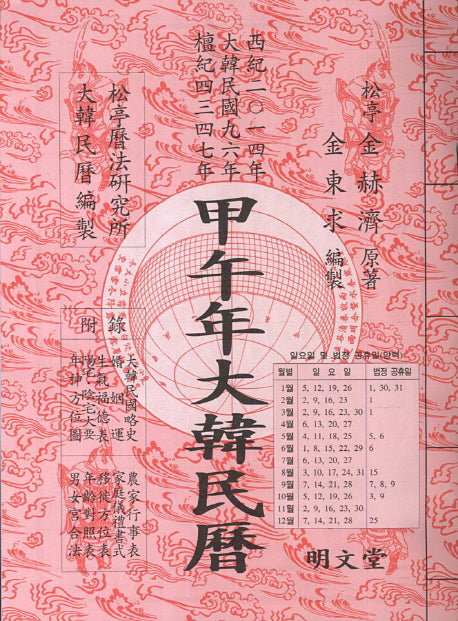 西紀二〇一四年
大韓民國九六年
檀紀四三四七年
松亭 金赫濟 原著
金東求 編製
松亭曆法硏究所
大韓民曆編製
甲午年大韓民曆
附錄
大韓民國略史
婚姻運
生氣福德表
陽宅陰宅大要
年神方位圖
農家行事表
家庭儀禮書式
移徙方位表
年齡對照表
男女宮合法
일요일 및 법정 공휴일(양력)
월별 일요일 법정 공휴일
1월 5, 12, 19, 26 1, 30, 31
2월 2, 9, 16, 23 1
3월 2, 9, 16, 23, 30 1
4월 6, 13, 20, 27
5월 4, 11, 18, 25 5, 6
6월 1, 8, 15, 22, 29 6
7월 6, 13, 20, 27
8월 3, 10, 17, 24, 31 15
9월 7, 14, 21, 28 7, 8, 9
10월 5, 12, 19, 26 3, 9
11월 2, 9, 16, 23, 30
12월 7, 14, 21, 28 25
明文堂